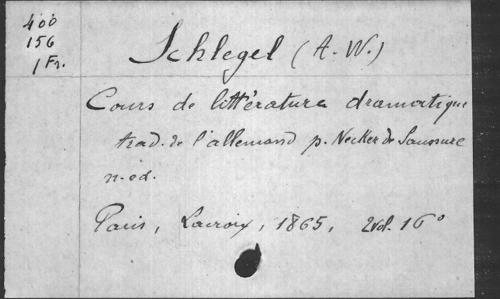 400
156
1 Fr.
Schlegel (A.-W.)
Cours de littérature dramatique
trad. de l'allemand p. Necker de Saussure
n. ed.
Paris, Lacroix, 1865, 2 vol. 16°